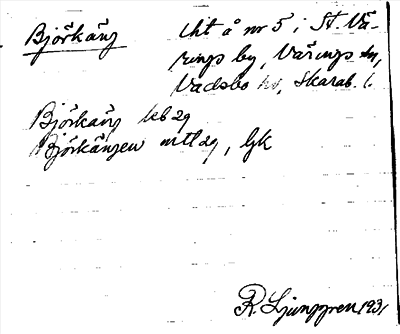 Björkäng
Uht å nr 5 i St. Vä-
rings by, Värings sn,
Vadsbo hd, Skarab. l.
Björkäng leb 29
Björkängen mtl 29, Gk
R. Ljunggren 1931